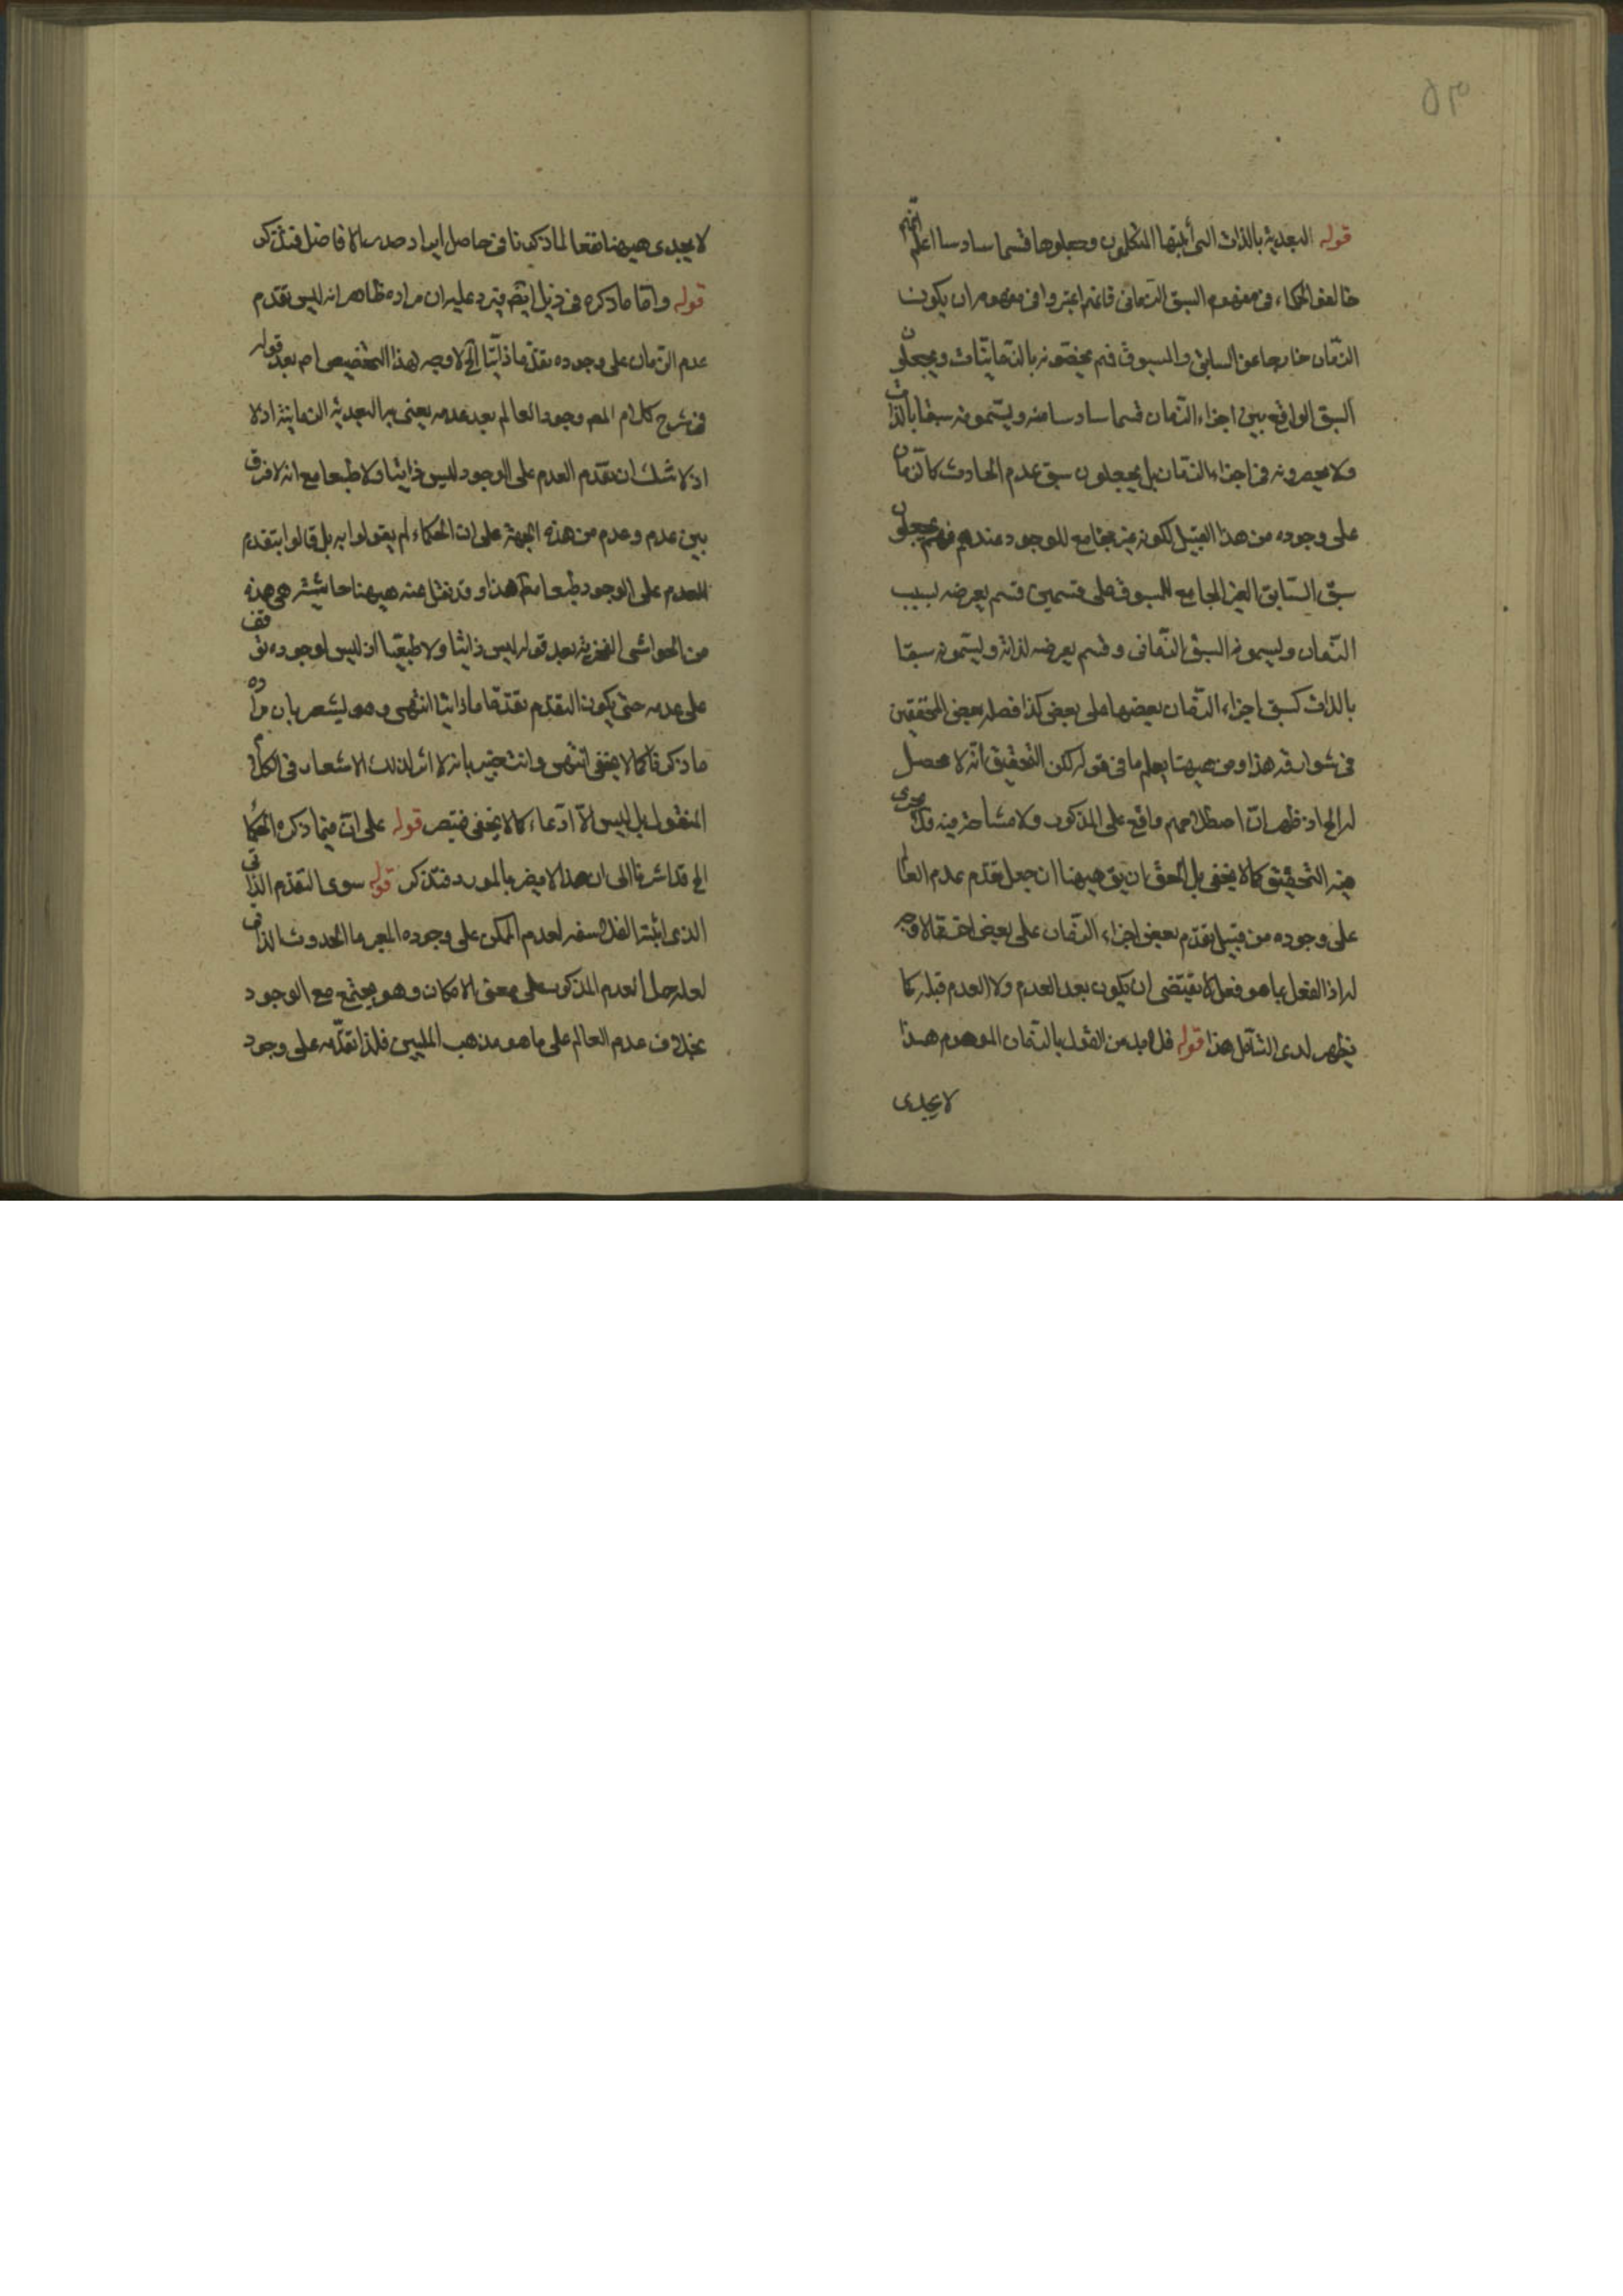 ٥٣
قوله البعدية بالذات التى أثبتها المتكلمون وجعلوها قسما سادسا اعلم انهم
خالفوا الحكماء فى مفهوم السبق الزمانى فانهم اعتبروا فى مفهومه ان يكون
الزمان خارجا عن السابق والمسبوق فهم يخصونه بالزمانيات ويجعلون
السبق الواقع بين اجزاء الزمان قسما سادسا منه ويسمونه سبقا بالذات
ولا يحصرونه فى اجزاء الزمان بل يجعلون سبق عدم الحادث كالزمان
على وجوده من هذا القبيل لكونه غير مجامع للوجود عندهم فهم يجعلون
سبق السابق الغير المجامع للمسبوق على قسمين قسم يعرضه لسبب
الزمان ويسمونه السبق الزمانى وقسم يعرضه لذاته ويسمونه سبقا
بالذات كسبق اجزاء الزمان بعضها على بعض كذا فصله بعض المحققين
فى شوارقه هذا ومن هيهنا يعلم ما فى قوله لكن التحقيق انه لا محصل
له الخ اذ ظهر ان اصطلاحهم واقع على المذكور ولا مشاحة فيه فلا يجرى
فيه التحقيق كما لا يخفى بل الحق ان يق هيهنا ان جعل تقدم عدم العالم
على وجوده من قبيل تقدم بعض اجزاء الزمان على بعض لا وجه
له اذ الفعل بما هو فعل لا يقتضى ان يكون بعد العدم ولا العدم قبله كما
يظهر لدى التأمل هذا قوله فلا بد من القول بالزمان الموهوم هذا
لا يجدى
لا يجدى هيهنا نفعا لما ذكرنا فى حاصل ايراد صدر الافاضل فتذكر
قوله واما ما ذكره فى ذيل ايضه فيرد عليه ان مراده ظاهر انه ليس تقدم
عدم الزمان على وجوده تقدما ذاتيا الخ لا وجه لهذا التخصيص اه بعد قوله
فى شرح كلام المص وجود العالم بعد عدمه يعنى به البعدية الزمانية اذ لا
اذ لا شك ان تقدم العدم على الوجود ليس ذاتيا ولا طبعا مع انه لا فرق
بين عدم وعدم من هذه الجهة على ان الحكماء لم يقولوا به بل قالوا بتقدم
العدم على الوجود طبعا هذا وقد نقل عنه هيهنا حاشية هى هذه
من الحواشى الفخرية بعد قوله ليس ذاتيا ولا طبعيا اذ ليس لوجوده توقف
على عدمه حتى يكون التقدم تقدما ذاتيا انتهى وهو يشعر بان مراده
ما ذكرنا كما لا يخفى انتهى وانت خبير بانه لا اثر لذلك الاشعار فى الكلام
المنقول بل ليس الا ادعاء كما لا يخفى فتبصر قوله على ان فيما ذكره الحكما
الخ قد اشرنا الى ان هذا لا يضر بالمورد فتذكر قوله سوى التقدم الذاتى
الذى اثبته الفلاسفه لعدم الممكن على وجوده المعبر بالحدوث الذاتى
لعله حمل العدم المذكور على معنى الامكان وهو يجتمع مع الوجود
بخلاف عدم العالم على ما هو مذهب المليين فلذا تقدمه على وجود